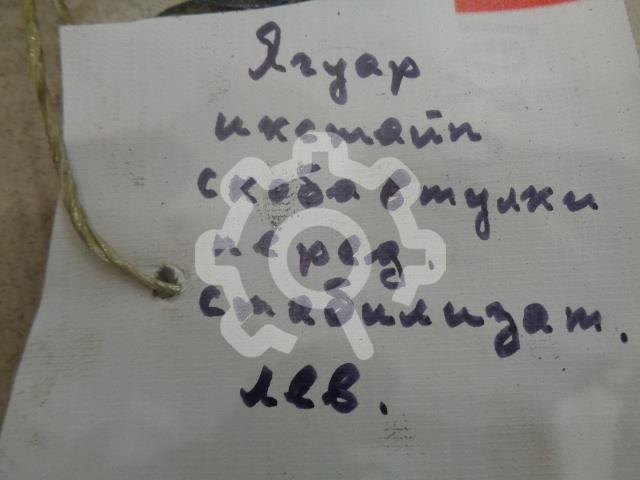 Ягуар
икстайп
скоба втулки
перед.
стабилизат.
лев.